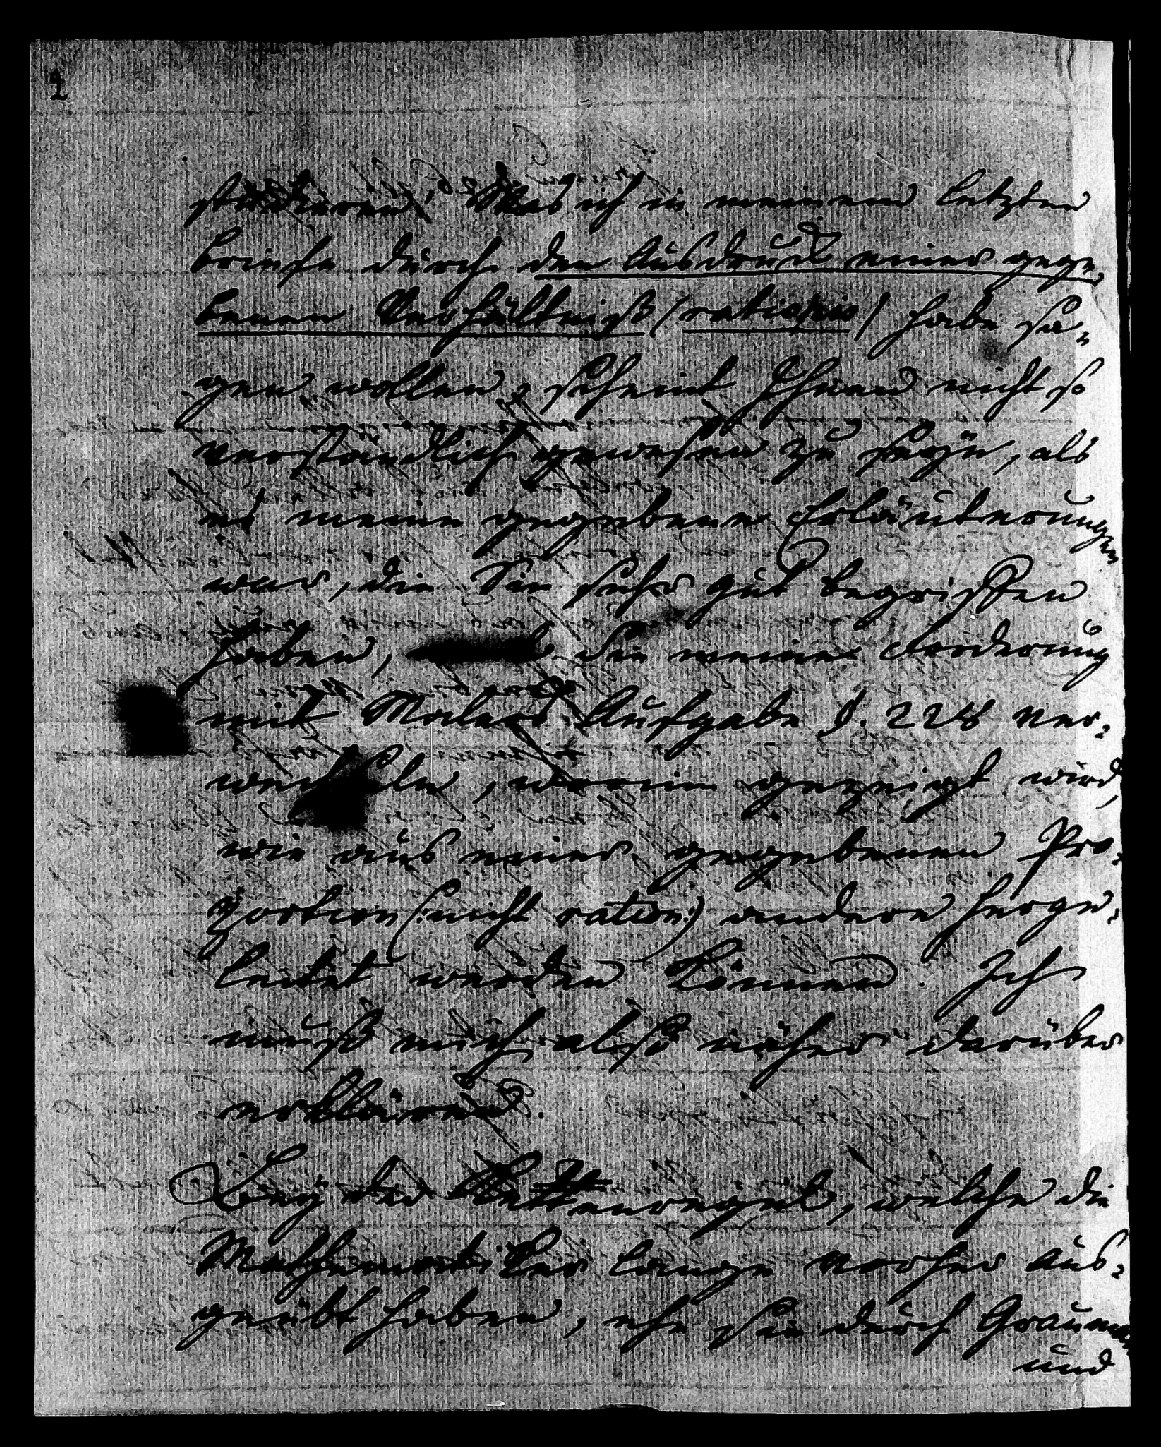 2
Was ich in meinem letzten
briefe durch den Ausdruck einer gege-
benen Verhältniß (rationis) habe sa-
gen wollen, scheint Ihnen nicht so
verständlich gewesen zu seyn, als
es meine gegebene Erläuterungen
war, die Sie sehr gut begriffen
haben, Sie meine Forderung
mit Malers Aufgabe §. 228 ver-
wechseln, worin gezeigt wird,
wie aus einer gegebenen Pro-
portion (nicht ration:) andere herge-
leitet werden können. Ich
muß mich also näher darüber
erklären.
Bey der Kettenregel, welche die
Mathematiker lange vorher aus-
geübt haben, ehe sie durch Graumann
und